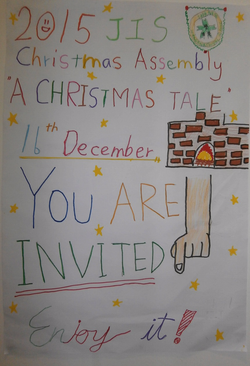 2015 JIS
Christmas Assembly
"A CHRISTMAS TALE"
16th December
YOU ARE
INVITED
Enjoy it!